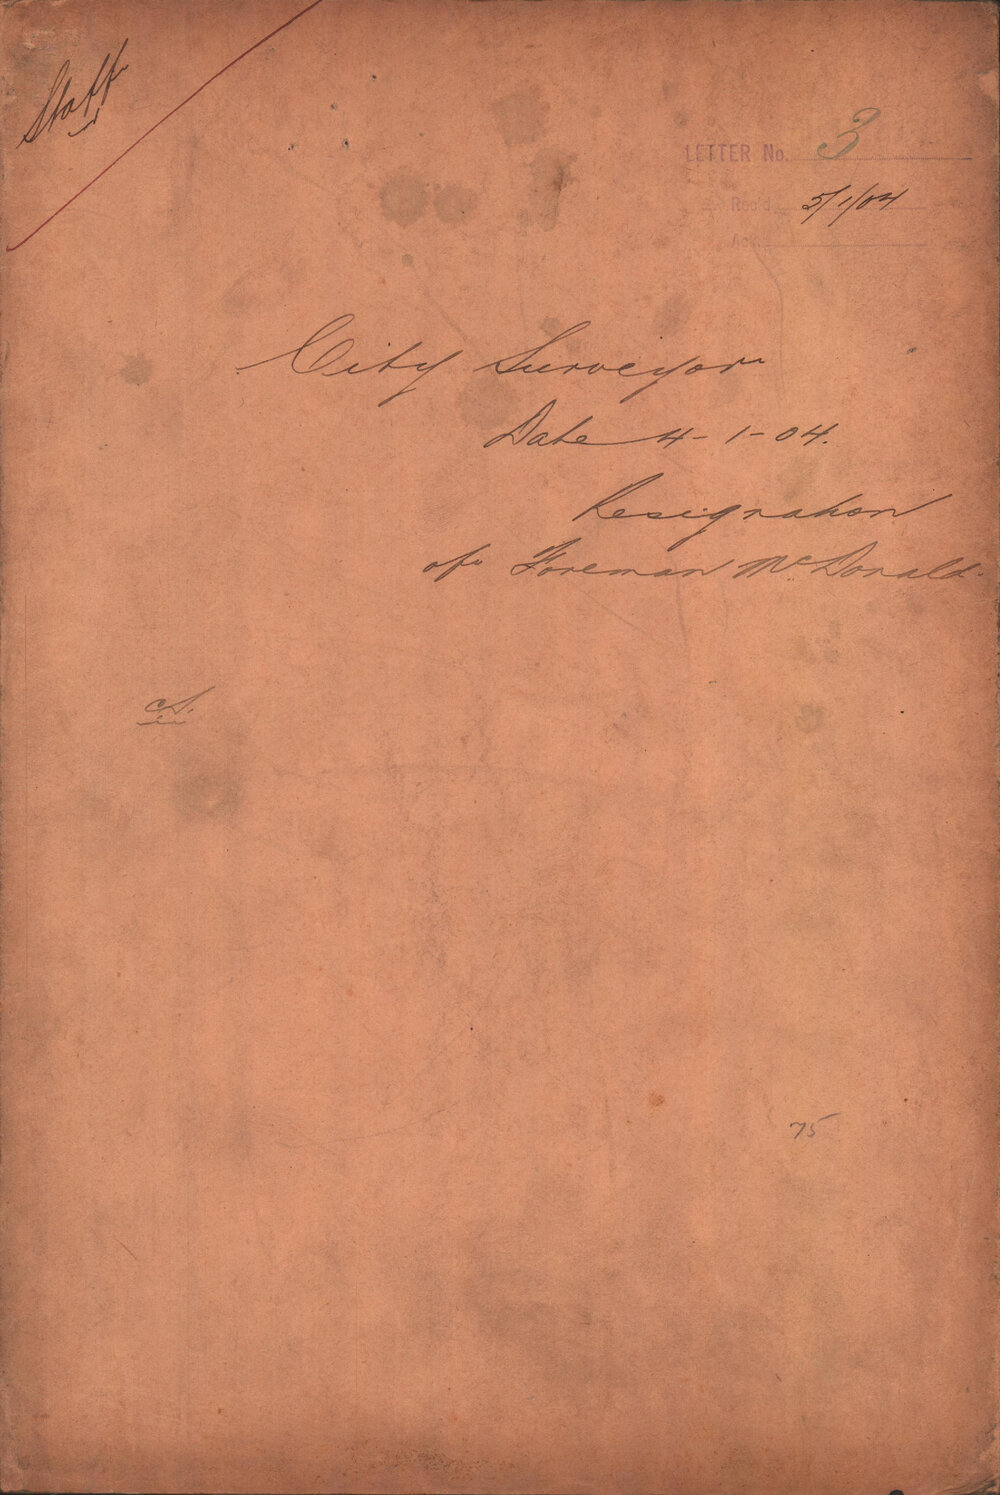 Staff
LETTER No. 3
Rec'd 5/1/04
Ack
City Surveyor
Date 4-1-04.
Resignation
of Foreman McDonald.
C.S.
75